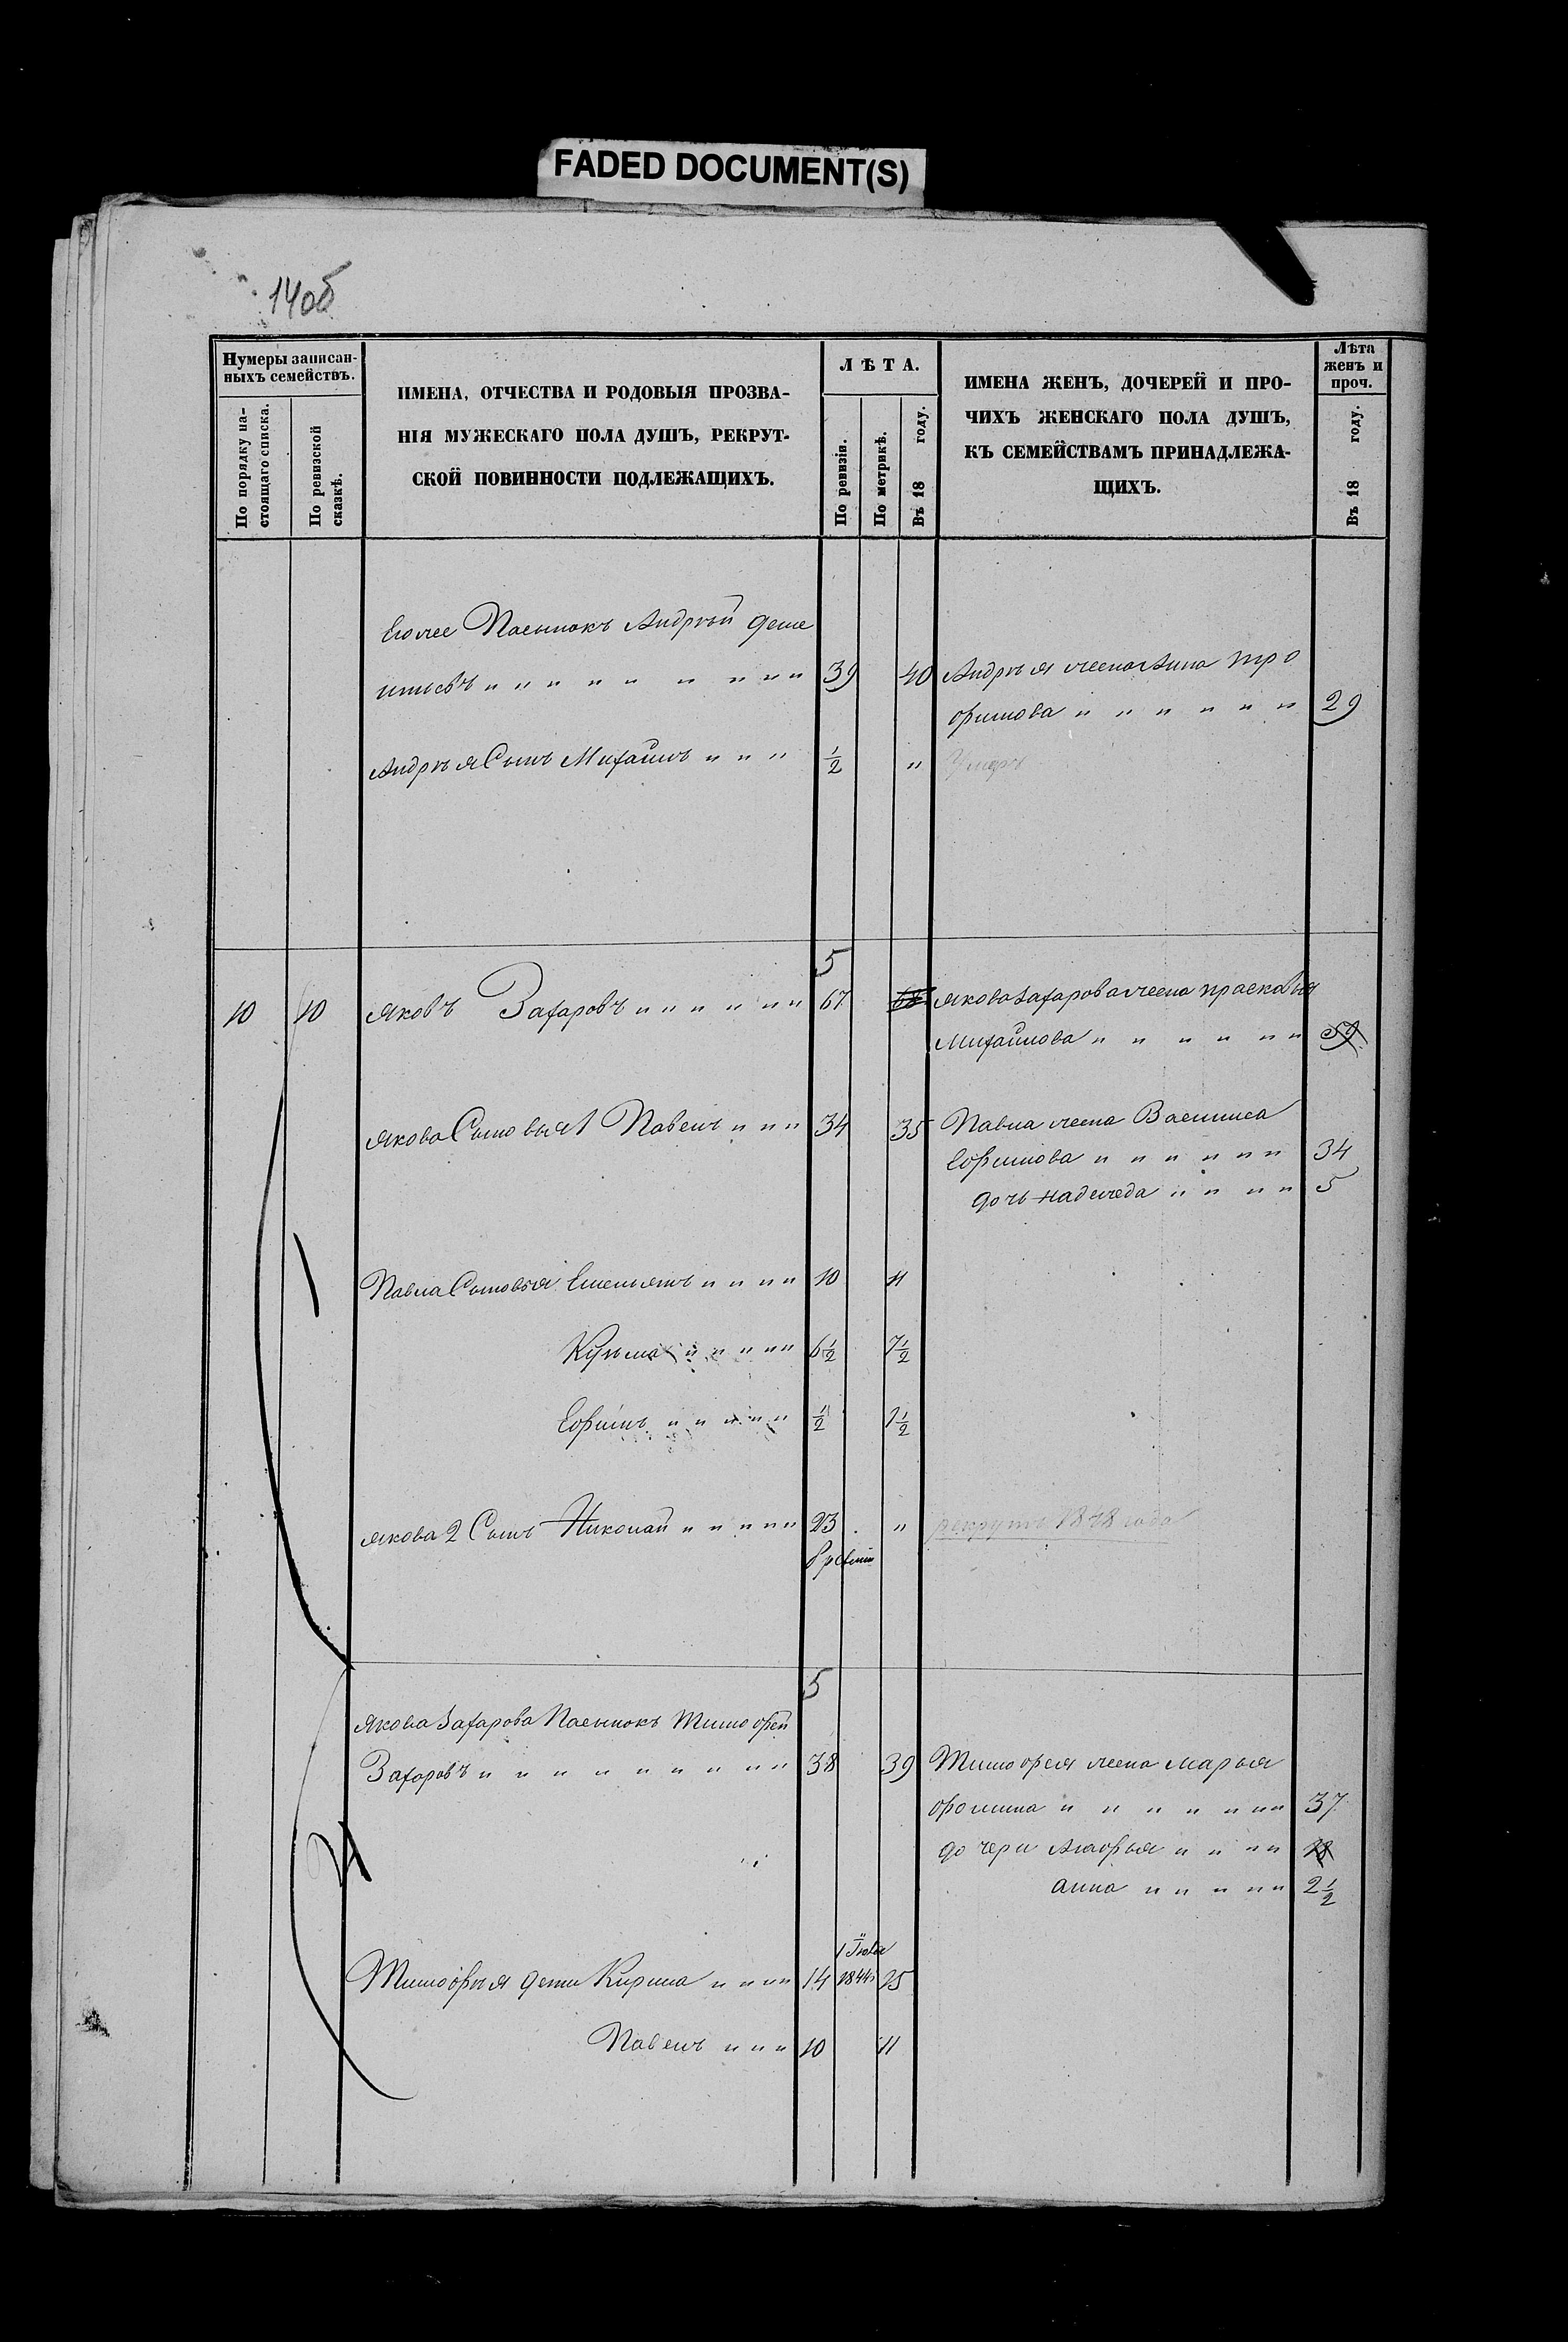 FADED DOCUMENT(S)
14об
Нумеры записан-
ныхъ семействъ.
По порядку на-
стоящаго списка.
По ревизской
сказкѣ.
ИМЕНА, ОТЧЕСТВА И РОДОВЫЯ ПРОЗВА-
НІЯ МУЖЕСКАГО ПОЛА ДУШЪ, РЕКРУТ-
СКОЙ ПОВИННОСТИ ПОДЛЕЖАЩИХЪ.
ЛѢТА.
По ревизіи.
По метрикѣ.
Въ 18 году.
ИМЕНА ЖЕНЪ, ДОЧЕРЕЙ И ПРО-
ЧИХЪ ЖЕНСКАГО ПОЛА ДУШЪ,
КЪ СЕМЕЙСТВАМЪ ПРИНАДЛЕЖА-
ЩИХЪ.
Лѣта
женъ и
проч.
Въ 18 году.
Его же Пасынокъ Андрѣй Деме
нтьевъ " " " " " " " " " 39 40 Андрѣя жена Анна тро
фимова " " " " " " 29
Андрѣя Сынъ Михайлъ " " " 1/2 " Умеръ
5
10 10 Яковъ Захаровъ " " " " " " 67 68 Якова Захарова жена прасковья
Михайлова " " " " " " 59
Якова Сыновья 1 Павелъ " " " 34 35 Павла жена Василиса
Ефимова " " " " " " 34
дочь надежда " " " " 5
1
Павла Сыновья Емельянъ " " " " 10 11
Кузьма " " " " " 6 1/2 7 1/2
Ефимъ " " " " " 1/2 1 1/2
Якова 2 Сынъ Николай " " " " " 23 " рекрутъ 1848 года
5
Якова Захарова Пасынокъ Тимофей
Захаровъ " " " " " " " " " 38 39 Тимофея жена марья
фомина " " " " " " " 37
дочери Агафья " " " " 18
анна " " " " " 2 1/2
1 Іюля
Тимофѣя дети Кирила " " " " 14 1844 15
Павелъ " " " 10 11